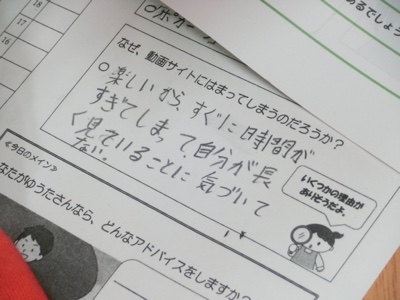 16
17
18
なぜ、動画サイトにはまってしまうのだろうか?
○楽しいから、すぐに時間が
すぎてしまって、自分が長
く見ていることに気づいて
ない。
いくつかの理由が
ありそうだよ。
≪今日のメイン≫
なたがゆうたさんなら、どんなアドバイスをしますか?
あるでしょう